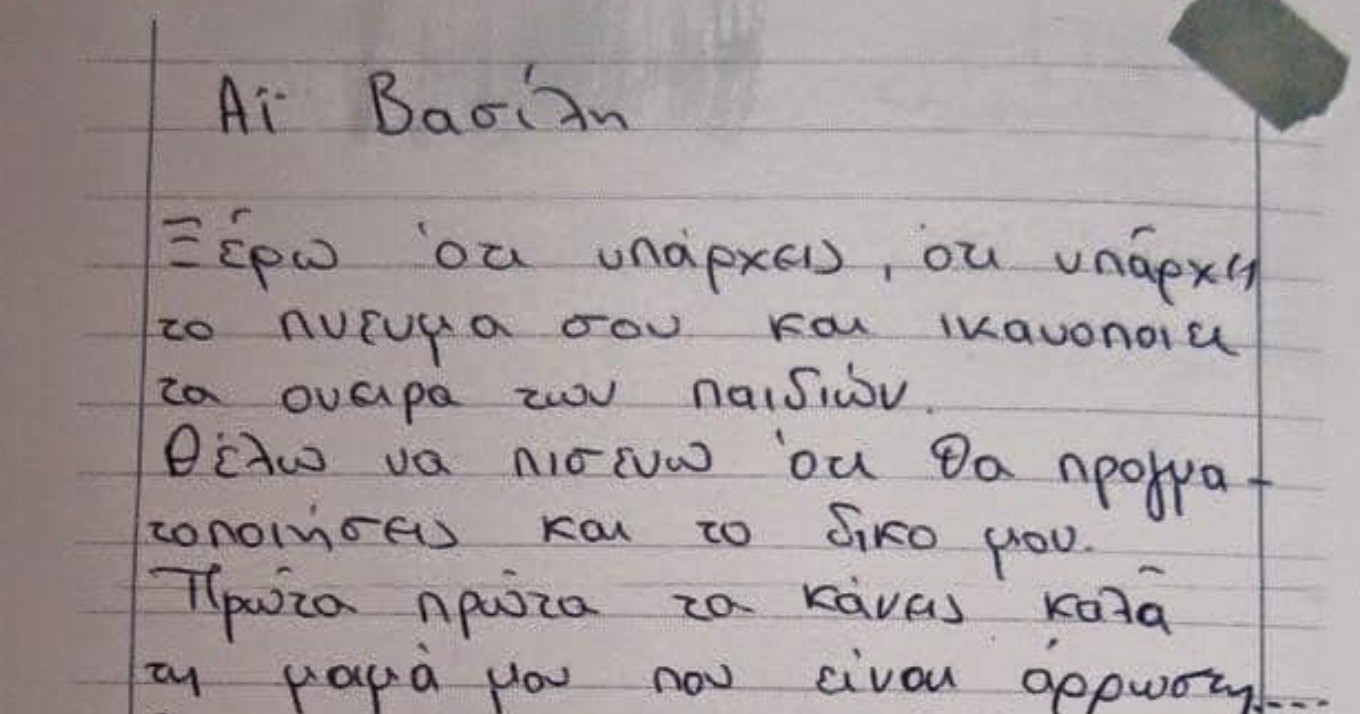 Αϊ Βασίλη
Ξέρω ότι υπάρχεις, ότι υπάρχει
το πνευμα σου και ικανοποιει
τα ονειρα των παιδιών.
Θέλω να πισευω ότι θα πραγμα-
τοποιήσεις και το δικο μου.
Πρώτα πρώτα τα κάνεις καλά
τη μαμά μου που είναι άρρωστη....